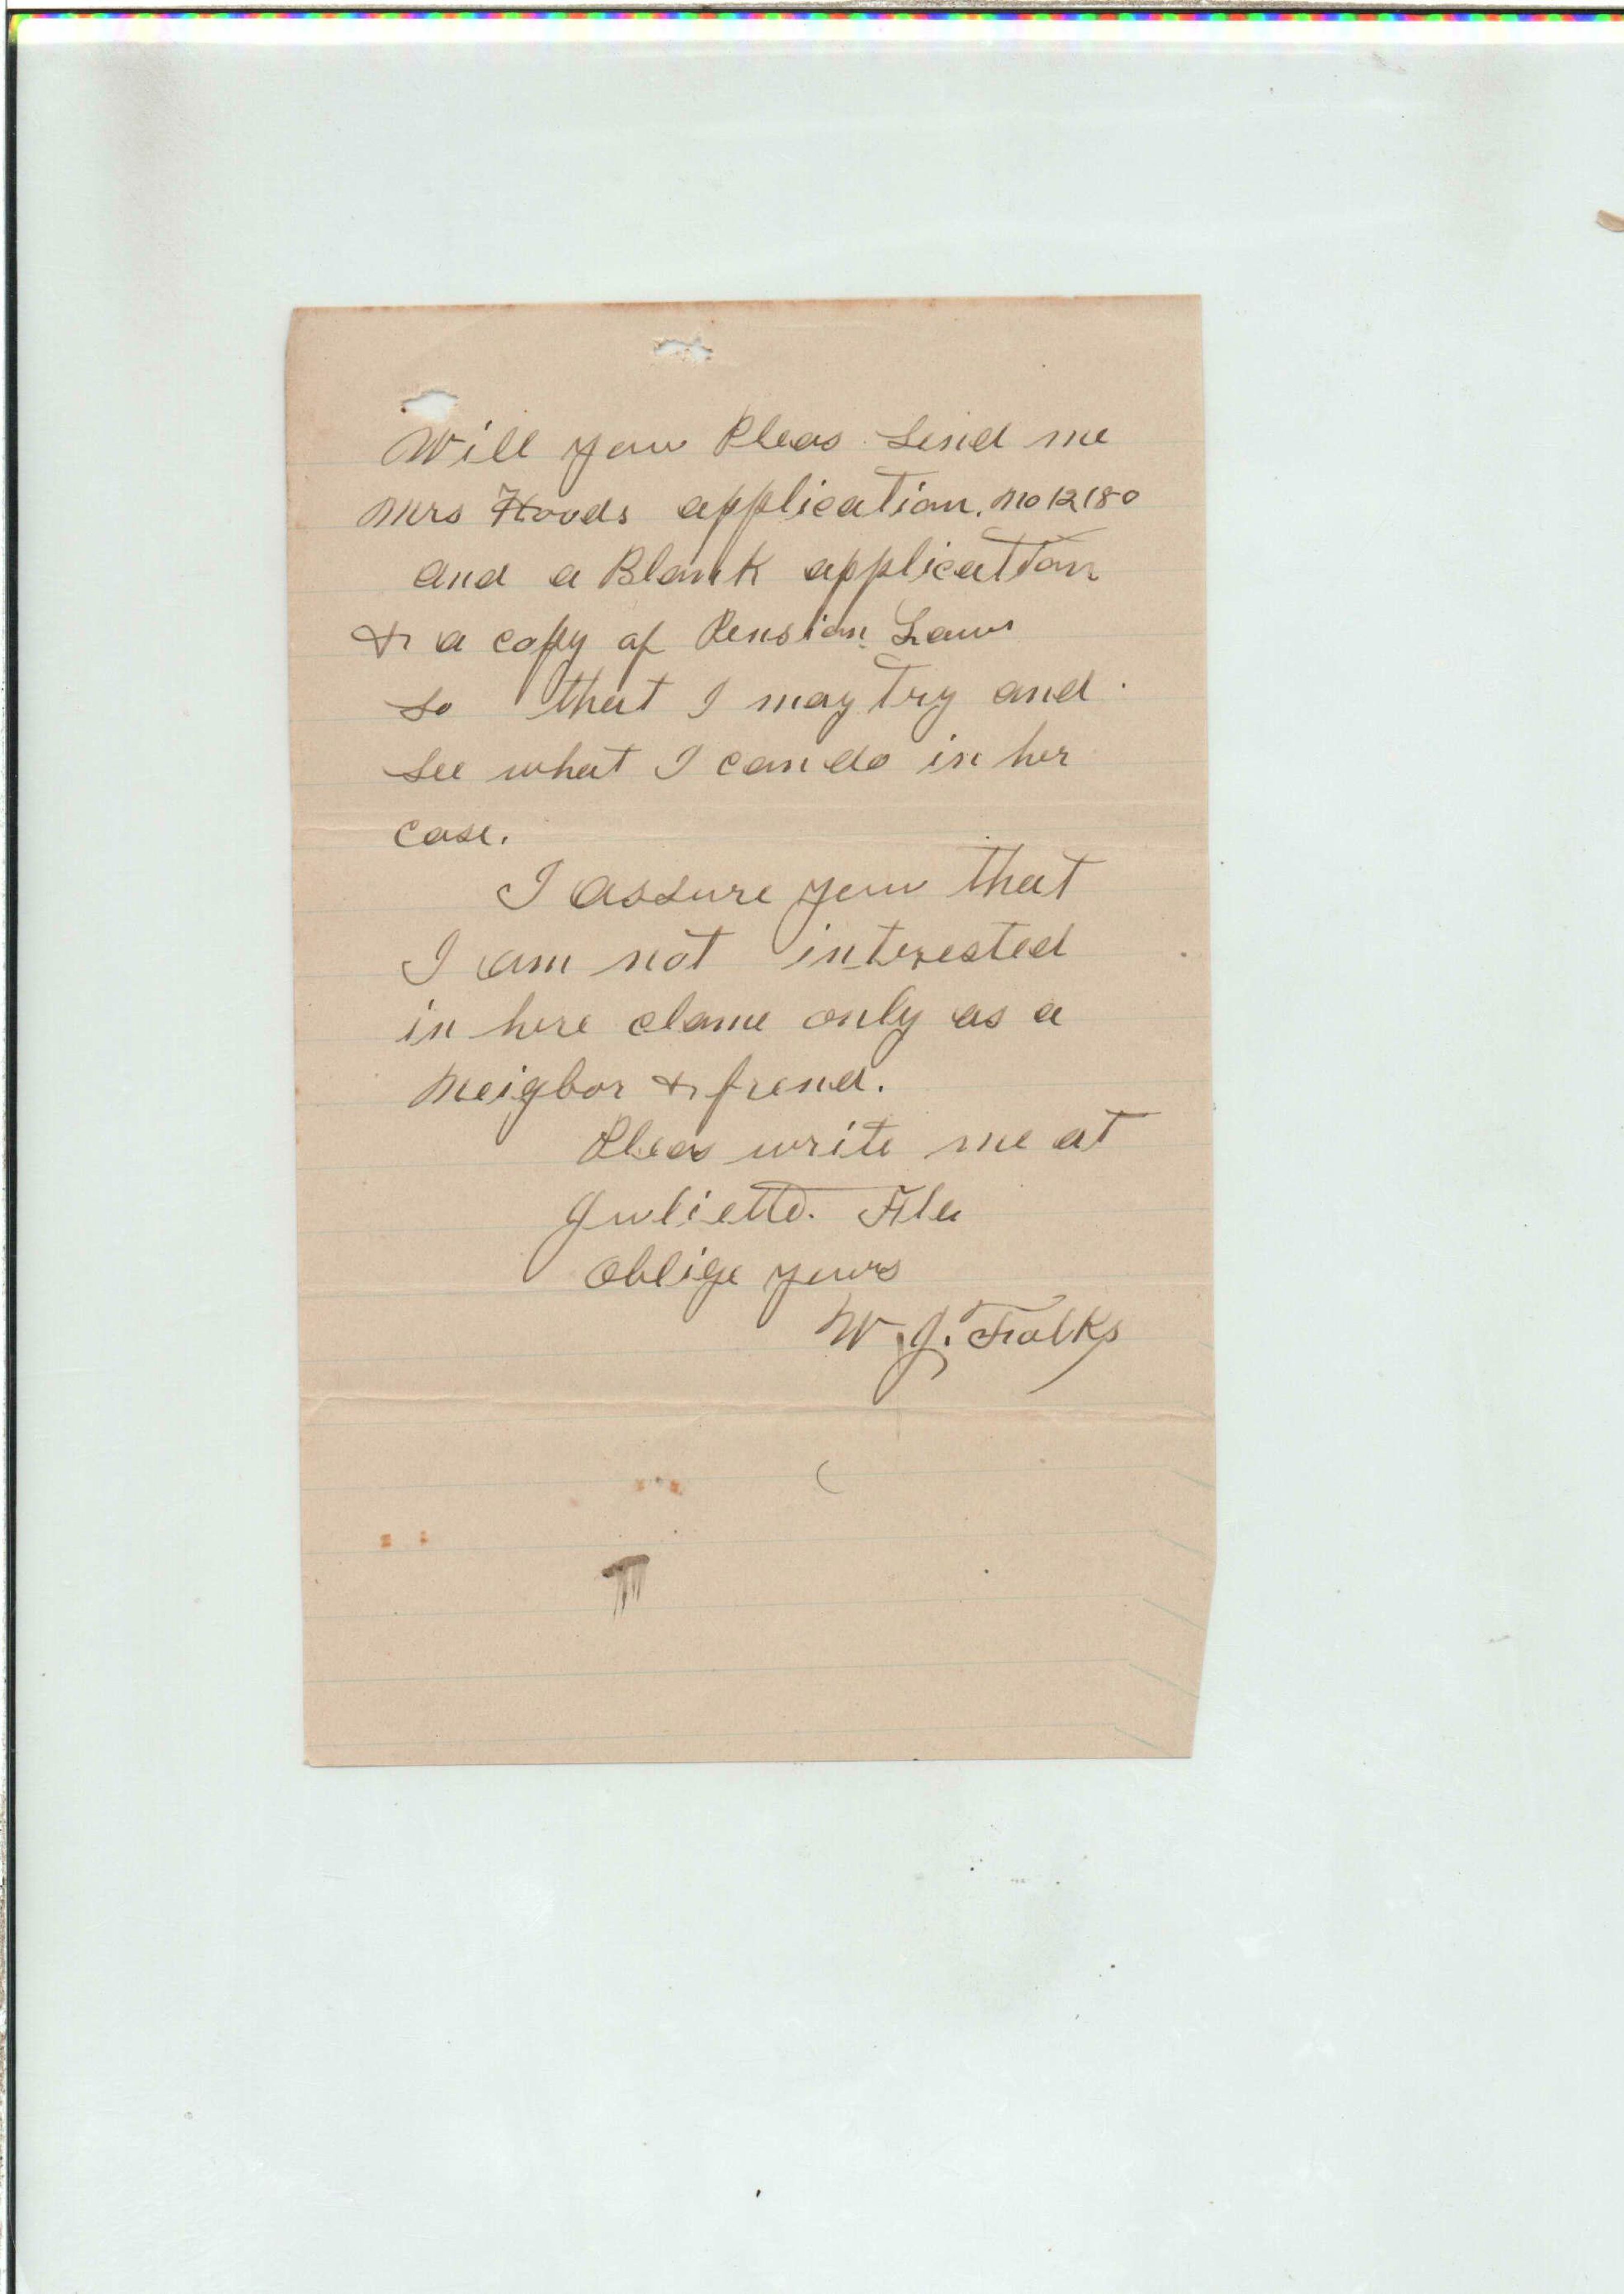 Will you Pleas send me
Mrs Hoods application. No 12180
and a Blank application
& a copy of Pension Laws
so that I may Try and
see what I can do in her
case.
I assure you that
I am not interested
in here clame only as a
Neigbor & frend.
Pleas write me at
Juliette. Fla
Oblige yours
W. J. Folks